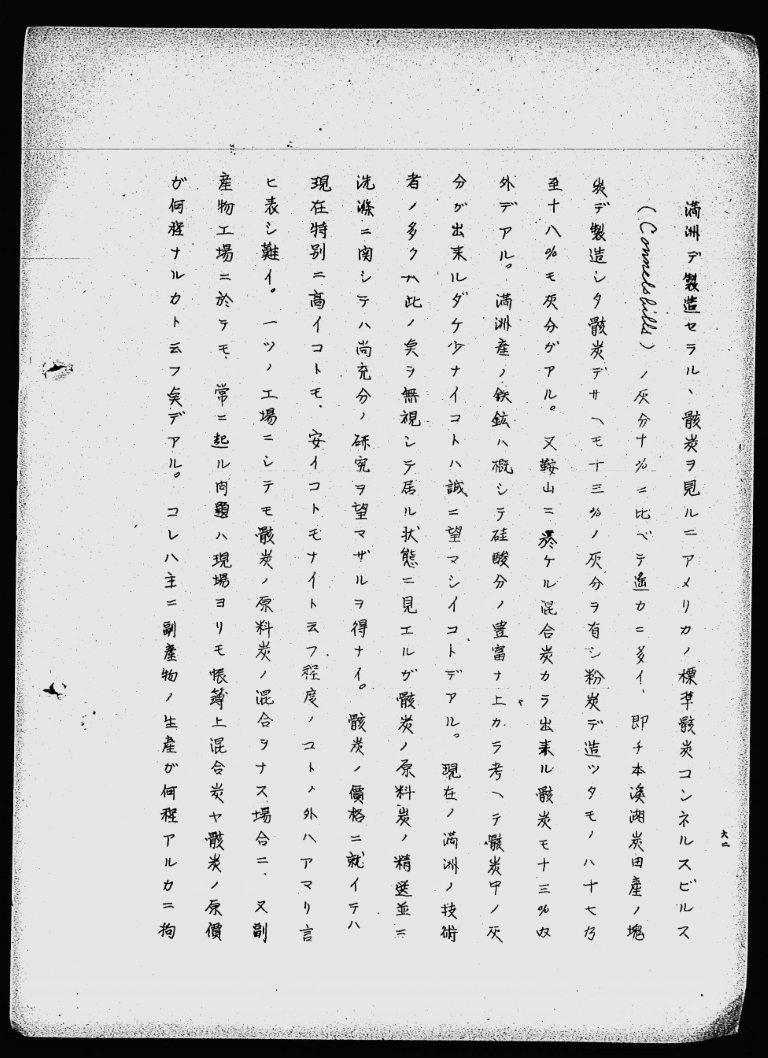 六二
満洲デ製造セラル、骸炭ヲ見ルニアメリカノ標準骸炭コンネルスビルス
(Connelsbills)ノ灰分十%ニ比ベテ遥カニ多イ、即チ本溪湖炭田産ノ塊
炭デ製造シタ骸炭デサヘモ十三%ノ灰分ヲ有シ粉炭デ造ツタモノハ十七乃
至十八%モ灰分ガアル。又鞍山ニ於ケル混合炭カラ出来ル骸炭モ十三%以
外デアル。満洲産ノ鉄鉱ハ概シテ硅酸分ノ豊富ナ上カラ考ヘテ骸炭中ノ灰
分ガ出来ルダケ少ナイコトハ誠ニ望マシイコトデアル。現在ノ満洲ノ技術
者ノ多クハ此ノ矣ヲ無視シテ居ル状態ニ見エルガ骸炭ノ原料炭ノ精選並ニ
洗滌ニ関シテハ尚充分ノ研究ヲ望マザルヲ得ナイ。骸炭ノ價格ニ就イテハ
現在特別ニ高イコトモ、安イコトモナイト云フ程度ノコトノ外ハアマリ言
ヒ表シ難イ。一ツノ工場ニシテモ骸炭ノ原料炭ノ混合ヲナス場合ニ、又副
産物工場ニ於テモ、常ニ起ル問題ハ現場ヨリモ帳簿上混合炭ヤ骸炭ノ原價
ガ何程ナルカト云フ矣デアル。コレハ主ニ副産物ノ生産ガ何程アルカニ拘